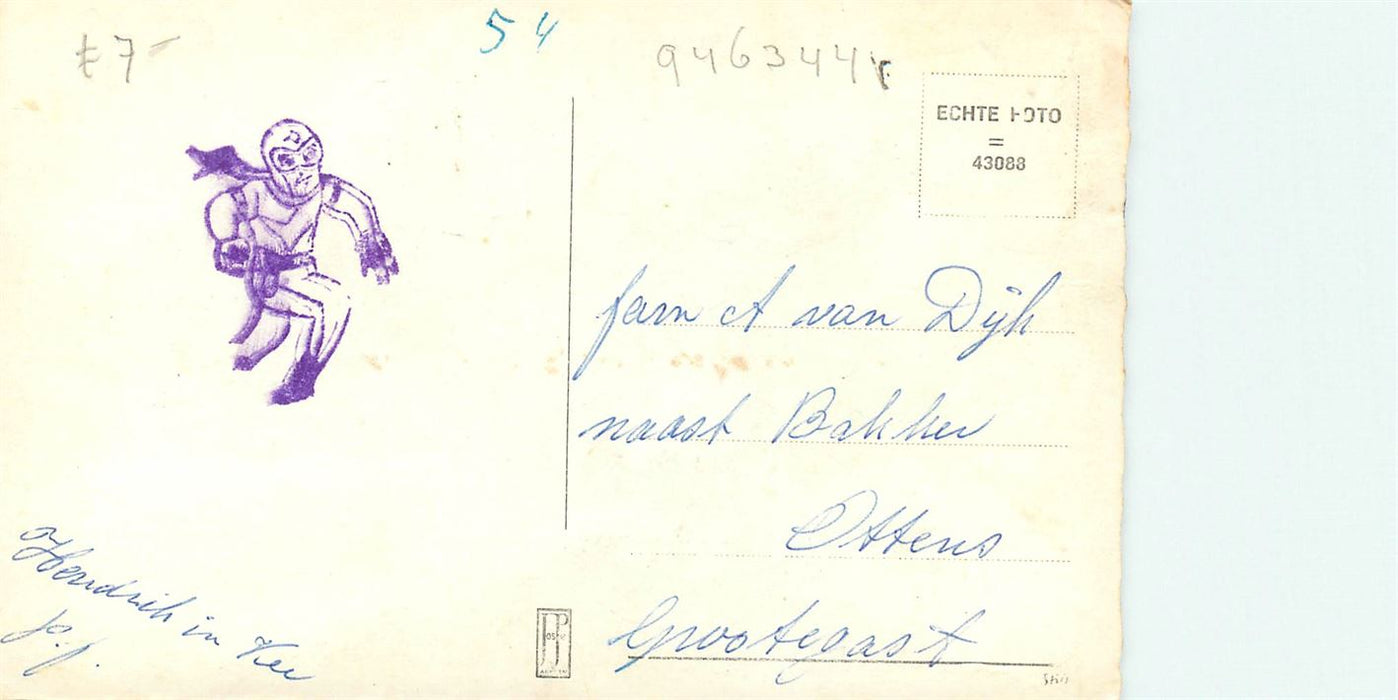 £7-
54
9463444
ECHTE FOTO
=
43088
fam A van Dijk
naast Bakker
Ottens
Grootegast
Hendrik en
p.f.